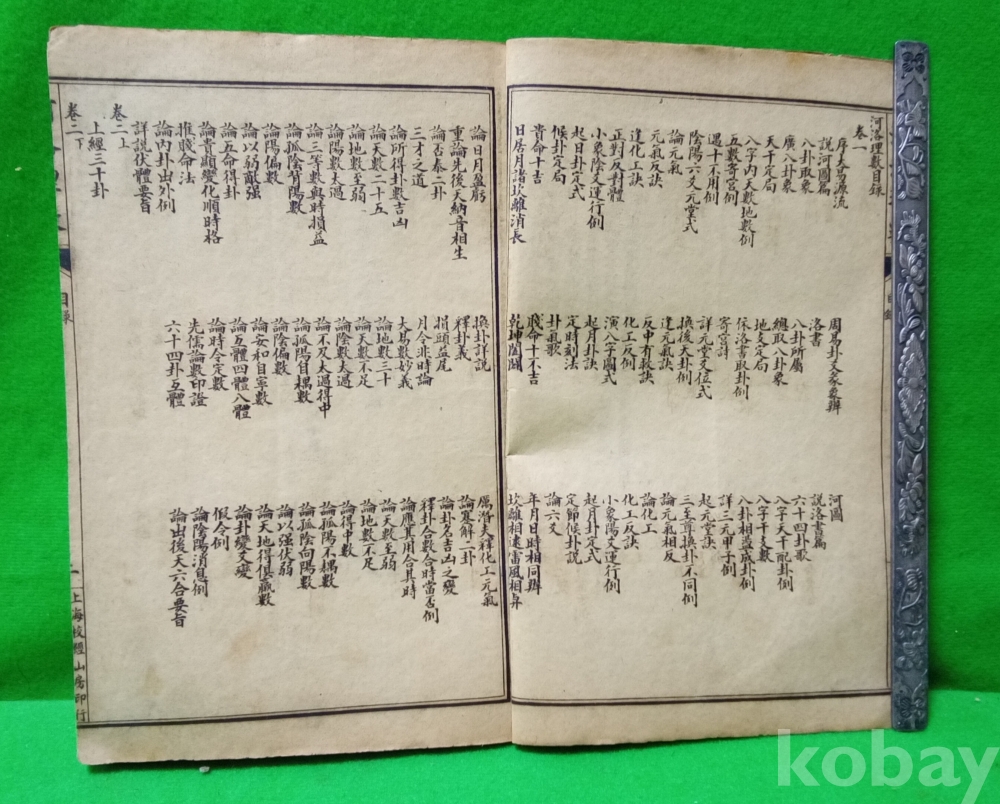 河洛理數目錄
卷一
序大易源流
周易卦爻彖象辨
河圖
說河圖篇
洛書
說洛書篇
八卦取象
八卦所屬
六十四卦歌
廣八卦象
總取八卦象
八字天干配卦例
天干定局
地支定局
八字干支數
八字內天數地數例
依洛書取卦例
八卦相盪成卦例
五數寄宮例
寄宮詩
詳三元甲子例
遇十不用例
詳元堂爻位式
起元堂訣
陰陽六爻元堂式
換後天卦例
三至尊換卦不同例
論元氣
逢元氣訣
論元氣相反
元氣反訣
反中有救訣
論化工
逢化工訣
化工反例
化工反訣
正對反對體
演八字圖式
小象陽爻運行例
小象陰爻運行例
起月卦訣
起月卦定式
起日卦定式
定時刻法
定節候卦說
候卦定局
卦氣歌
論六爻
貴命十吉
賤命十不吉
年月日時相同辨
日居月諸坎離消長
乾坤闔闢
坎離相逮雷風相
論日月盈虧
換卦詳說
厲潛夫釋化工元氣
重論先後天納音相生
釋卦義
論蹇解二卦
論否泰二卦
損頭益尾
論卦名吉凶之變
三才之道
月令非時論
釋卦合數合時當否例
論所得卦數吉凶
大易數妙義
論應其用合其時
論天數二十五
論地數三十
論天數至弱
論地數至弱
論天數不足
論地數不足
論陽數太過
論陰數太過
論得中數
論三等數與時損益
論不及太過得中
論陰陽不耦數
論孤陰背陽數
論孤陽自耦數
論孤陰向陽數
論陽偏數
論陰偏數
論孤陽陽數
論以弱敵強
論安和自寧數
論以強伏弱
論五命得卦
論互體四體八體
論天地得俱臧數
論貴顯變化順時格
論時令定數
論卦變爻變
推賤命法
先儒論數印證
假令例
論內卦出外例
六十四卦互體
論陰陽消息例
詳說伏體要旨
論出後天六合要旨
卷二上
上經三十卦
卷二下
目錄
一
上海校經山房印行
kobay